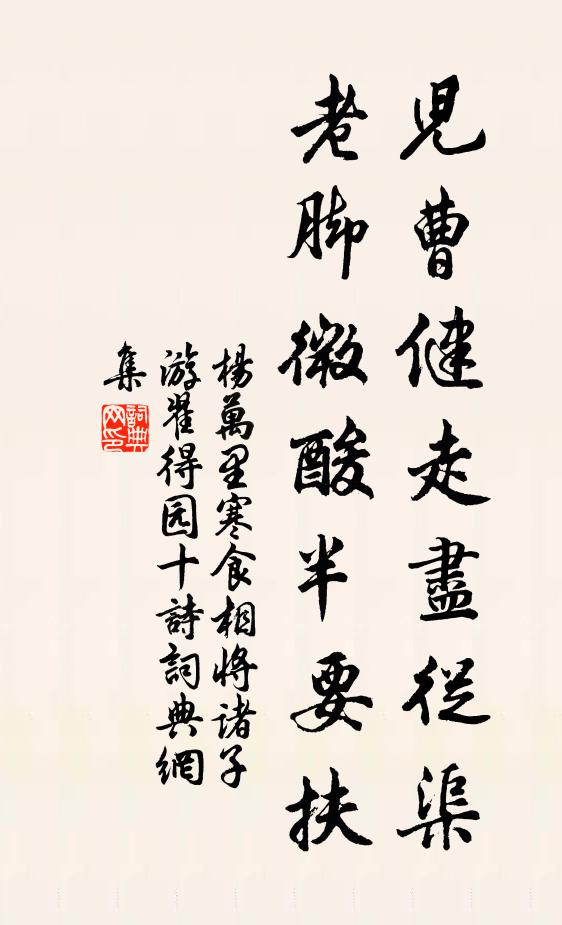 兒曹健走盡從渠
老脚微酸半要扶
楊萬里寒食相將諸子
游翟得园十詩詞典網
集
詞典网印